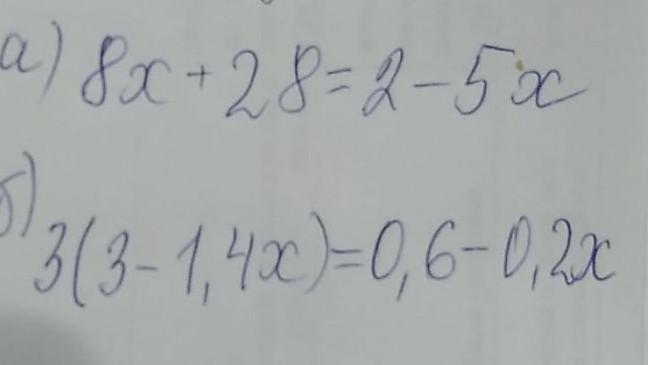 а) 8x + 28 = 2 - 5x
б) 3(3 - 1,4x) = 0,6 - 0,2x